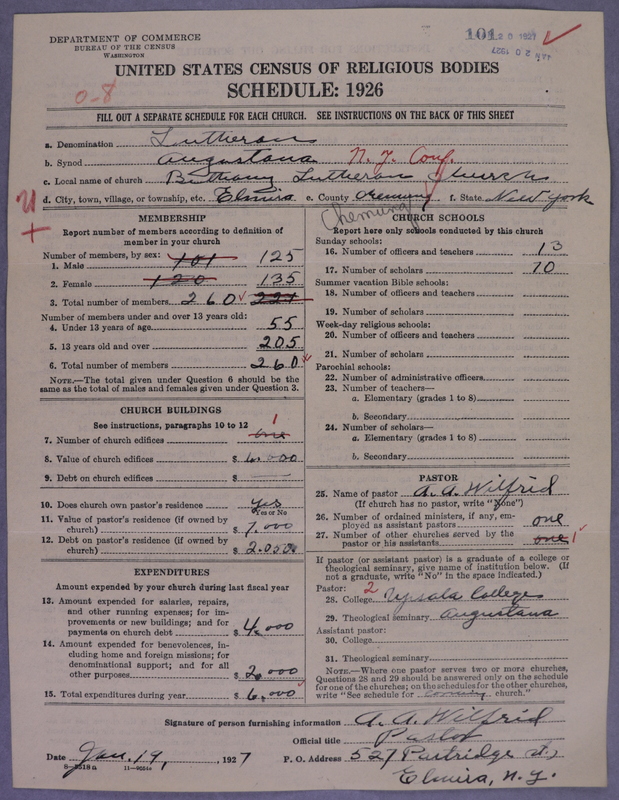 DEPARTMENT OF COMMERCE
BUREAU OF THE CENSUS
WASHINGTON
101
JAN 20 1927
UNITED STATES CENSUS OF RELIGIOUS BODIES
SCHEDULE: 1926
0-8
FILL OUT A SEPARATE SCHEDULE FOR EACH CHURCH. SEE INSTRUCTIONS ON THE BACK OF THIS SHEET
a. Denomination Lutheran
b. Synod Augustana N.Y. Conf.
c. Local name of church Bethany Lutheran Church
d. City, town, village, or township, etc. Elmira e. County Chemung f. State New York
Chemung
MEMBERSHIP
Report number of members according to definition of
member in your church
Number of members, by sex:
1. Male 101 125
2. Female 120 135
3. Total number of members 260 221
Number of members under and over 13 years old:
4. Under 13 years of age 55
5. 13 years old and over 205
6. Total number of members 260
NOTE.—The total given under Question 6 should be the
same as the total of males and females given under Question 3.
CHURCH BUILDINGS
See instructions, paragraphs 10 to 12
7. Number of church edifices one 1
8. Value of church edifices $ 6,000
9. Debt on church edifices $
10. Does church own pastor's residence yes
Yes or No
11. Value of pastor's residence (if owned by
church) $ 7,000
12. Debt on pastor's residence (if owned by
church) $
EXPENDITURES
Amount expended by your church during last fiscal year
13. Amount expended for salaries, repairs,
and other running expenses; for im-
provements or new buildings; and for
payments on church debt $ 4,000
14. Amount expended for benevolences, in-
cluding home and foreign missions; for
denominational support; and for all
other purposes $ 2,000
15. Total expenditures during year $ 6,000
CHURCH SCHOOLS
Report here only schools conducted by this church
Sunday schools:
16. Number of officers and teachers 13
17. Number of scholars 70
Summer vacation Bible schools:
18. Number of officers and teachers
19. Number of scholars
Week-day religious schools:
20. Number of officers and teachers
21. Number of scholars
Parochial schools:
22. Number of administrative officers
23. Number of teachers—
a. Elementary (grades 1 to 8)
b. Secondary
24. Number of scholars—
a. Elementary (grades 1 to 8)
b. Secondary
PASTOR
25. Name of pastor A. A. Wilfrid
(If church has no pastor, write "None")
26. Number of ordained ministers, if any, em-
ployed as assistant pastors one
27. Number of other churches served by the
pastor or his assistants one 1
If pastor (or assistant pastor) is a graduate of a college or
theological seminary, give name of institution below. (If
not a graduate, write "No" in the space indicated.)
Pastor: 2
28. College Upsala College
29. Theological seminary Augustana
Assistant pastor:
30. College
31. Theological seminary
NOTE.—Where one pastor serves two or more churches,
Questions 28 and 29 should be answered only on the schedule
for one of the churches; on the schedules for the other churches,
write "See schedule for church."
Signature of person furnishing information A. A. Wilfrid
Official title Pastor
Date Jan. 19, 1927 P. O. Address 527 Partridge St.,
8-5518a 11-9554a
Elmira, N.Y.